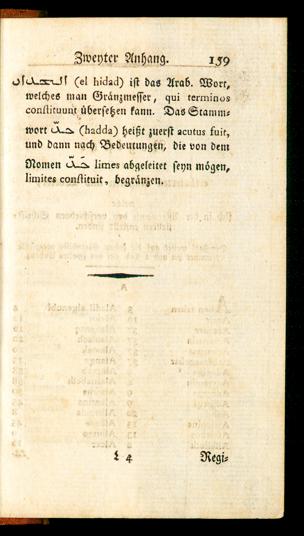 Zweyter Anhang. 159
الحدان (el hidad) ist das Arab. Wort,
welches man Gränzmesser, qui terminos
constituunt übersetzen kann. Das Stamm-
wort حدّ (hadda) heißt zuerst acutus fuit,
und dann nach Bedeutungen, die von dem
Nomen حدّ limes abgeleitet seyn mögen,
limites constituit, begränzen.
L 4 Regi-